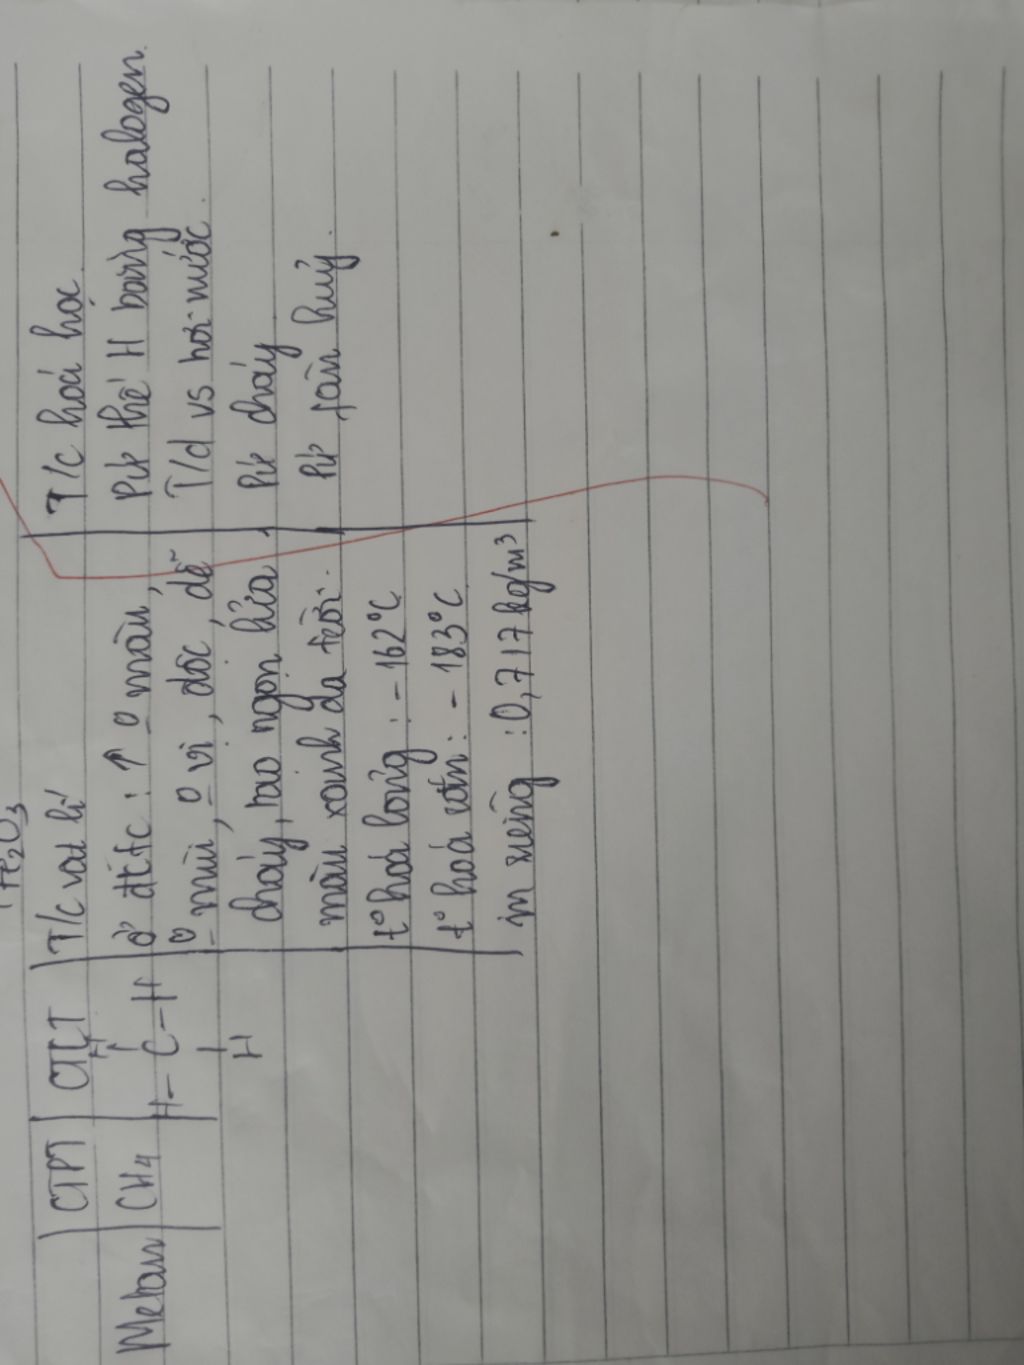 Fe2O3
CTPT CTCT T/c vật lí T/c hoá học
Metan CH4 ở đtfc : ↑ ko màu, Pứ thế H bằng halogen.
H
H – C – H
H
ko mùi, ko vị, độc, dễ T/d vs hơi nước.
cháy, tạo ngọn lửa Pứ cháy
màu xanh da trời. Pứ phân huỷ.
t° hoá lỏng : – 162°C
t° hoá rắn : – 183°C
m riêng : 0,717 kg/m³